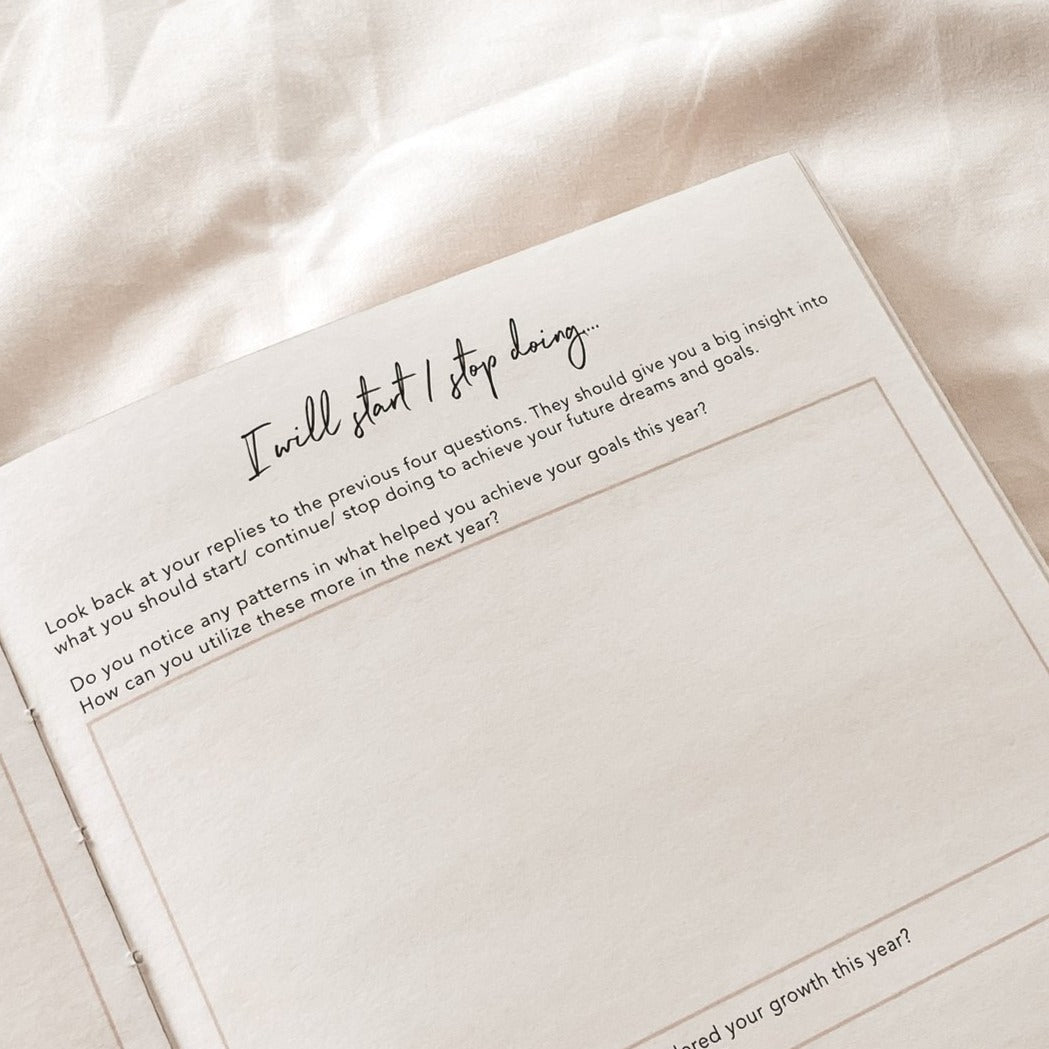 I will start / stop doing...
Look back at your replies to the previous four questions. They should give you a big insight into
what you should start/ continue/ stop doing to achieve your future dreams and goals.
Do you notice any patterns in what helped you achieve your goals this year?
How can you utilize these more in the next year?
your growth this year?